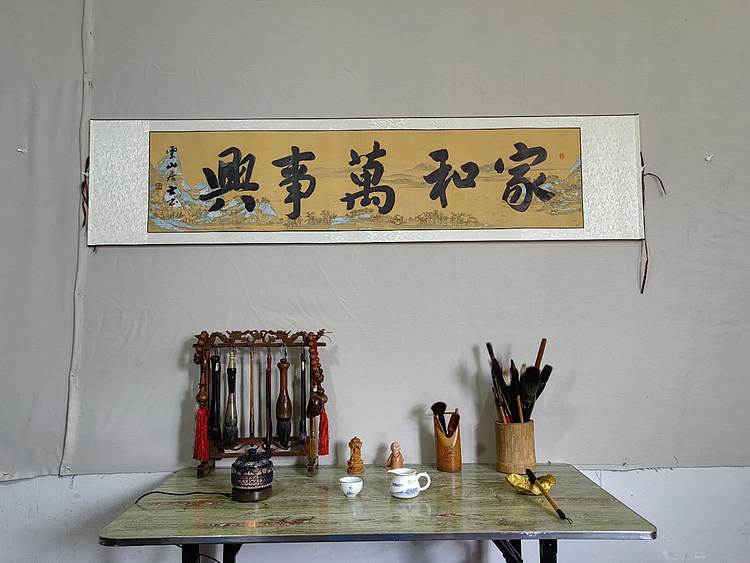 家和萬事興
雲山居士书